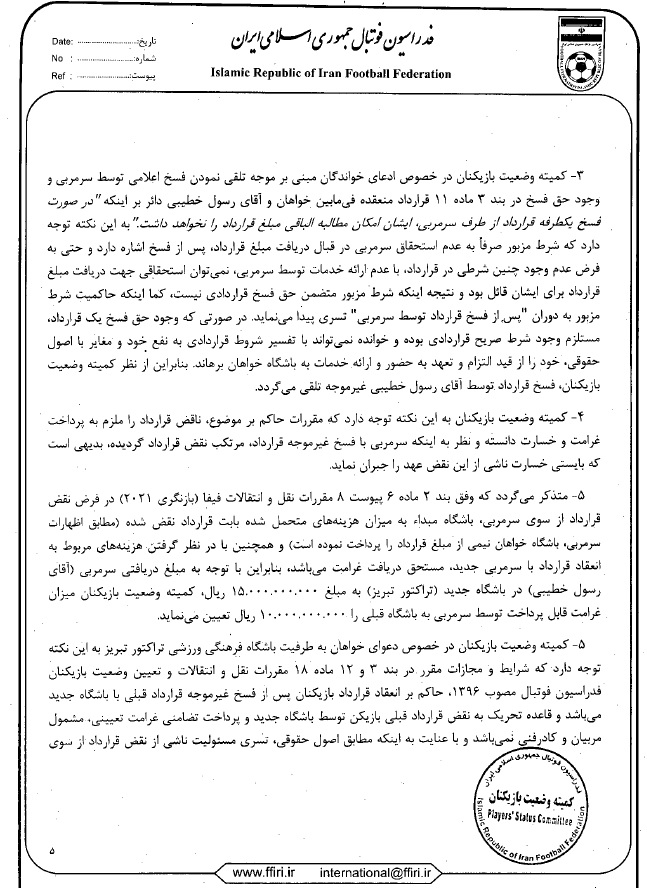 فدراسیون فوتبال جمهوری اسلامی ایران
Islamic Republic of Iran Football Federation
تاریخ: Date:
شماره: No :
پیوست: Ref :
۳- کمیته وضعیت بازیکنان در خصوص ادعای خواندگان مبنی بر موجه تلقی نمودن فسخ اعلامی توسط سرمربی و
وجود حق فسخ در بند ۳ ماده ۱۱ قرارداد منعقده فی‌مابین خواهان و آقای رسول خطیبی دائر بر اینکه "در صورت
فسخ یکطرفه قرارداد از طرف سرمربی، ایشان امکان مطالبه الباقی مبلغ قرارداد را نخواهد داشت." به این نکته توجه
دارد که شرط مزبور صرفاً به عدم استحقاق سرمربی در قبال دریافت مبلغ قرارداد، پس از فسخ اشاره دارد و حتی به
فرض عدم وجود چنین شرطی در قرارداد، با عدم ارائه خدمات توسط سرمربی، نمی‌توان استحقاقی جهت دریافت مبلغ
قرارداد برای ایشان قائل بود و نتیجه اینکه شرط مزبور متضمن حق فسخ قراردادی نیست، کما اینکه حاکمیت شرط
مزبور به دوران "پس از فسخ قرارداد توسط سرمربی" تسری پیدا می‌نماید. در صورتی که وجود حق فسخ یک قرارداد،
مستلزم وجود شرط صریح قراردادی بوده و خوانده نمی‌تواند با تفسیر شروط قراردادی به نفع خود و مغایر با اصول
حقوقی، خود را از قید التزام و تعهد به حضور و ارائه خدمات به باشگاه خواهان برهاند. بنابراین از نظر کمیته وضعیت
بازیکنان، فسخ قرارداد توسط آقای رسول خطیبی غیرموجه تلقی می‌گردد.
۴- کمیته وضعیت بازیکنان به این نکته توجه دارد که مقررات حاکم بر موضوع، ناقض قرارداد را ملزم به پرداخت
غرامت و خسارت دانسته و نظر به اینکه سرمربی با فسخ غیرموجه قرارداد، مرتکب نقض قرارداد گردیده، بدیهی است
که بایستی خسارت ناشی از این نقض عهد را جبران نماید.
۵- متذکر می‌گردد که وفق بند ۲ ماده ۶ پیوست ۸ مقررات نقل و انتقالات فیفا (بازنگری ۲۰۲۱) در فرض نقض
قرارداد از سوی سرمربی، باشگاه مبداء به میزان هزینه‌های متحمل شده بابت قرارداد نقض شده (مطابق اظهارات
سرمربی، باشگاه خواهان نیمی از مبلغ قرارداد را پرداخت نموده است) و همچنین با در نظر گرفتن هزینه‌های مربوط به
انعقاد قرارداد با سرمربی جدید، مستحق دریافت غرامت می‌باشد، بنابراین با توجه به مبلغ دریافتی سرمربی (آقای
رسول خطیبی) در باشگاه جدید (تراکتور تبریز) به مبلغ ۱۵.۰۰۰.۰۰۰.۰۰۰ ریال، کمیته وضعیت بازیکنان میزان
غرامت قابل پرداخت توسط سرمربی به باشگاه قبلی را ۱۰.۰۰۰.۰۰۰.۰۰۰ ریال تعیین می‌نماید.
۵- کمیته وضعیت بازیکنان در خصوص دعوای خواهان به طرفیت باشگاه فرهنگی ورزشی تراکتور تبریز به این نکته
توجه دارد که شرایط و مجازات مقرر در بند ۳ و ۱۲ ماده ۱۸ مقررات نقل و انتقالات و تعیین وضعیت بازیکنان
فدراسیون فوتبال مصوب ۱۳۹۶، حاکم بر انعقاد قرارداد بازیکنان پس از فسخ غیرموجه قرارداد قبلی با باشگاه جدید
می‌باشد و قاعده تحریک به نقض قرارداد قبلی بازیکن توسط باشگاه جدید و پرداخت تضامنی غرامت تعیینی، مشمول
مربیان و کادرفنی نمی‌باشد و با عنایت به اینکه مطابق اصول حقوقی، تسری مسئولیت ناشی از نقض قرارداد از سوی
فدراسیون فوتبال جمهوری اسلامی ایران
کمیته وضعیت بازیکنان
Players' Status Committee
Islamic Republic of Iran Football Federation
۵
www.ffiri.ir international@ffiri.ir